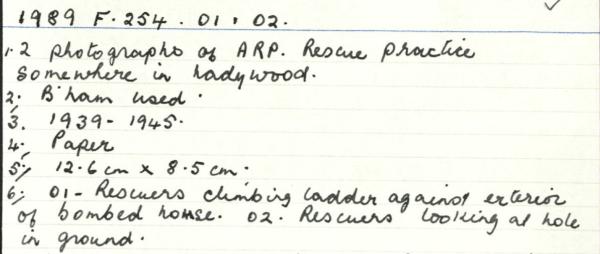 1989 F. 254 . 01 . 02.
1. 2 photographs of ARP. Rescue practice
somewhere in Ladywood.
2. B'ham used.
3. 1939-1945.
4. Paper
5. 12.6 cm x 8.5 cm.
6. 01 - Rescuers climbing ladder against exterior
of bombed house. 02. Rescuers looking at hole
in ground.